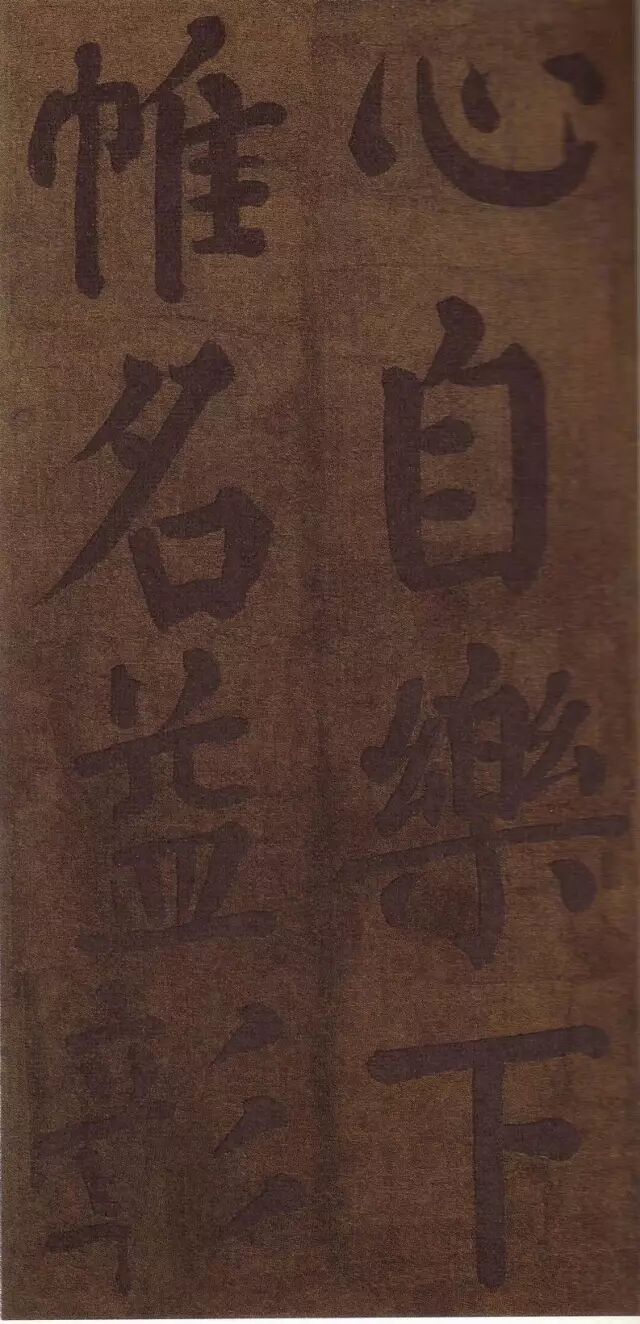 心自樂下
帷名益彰